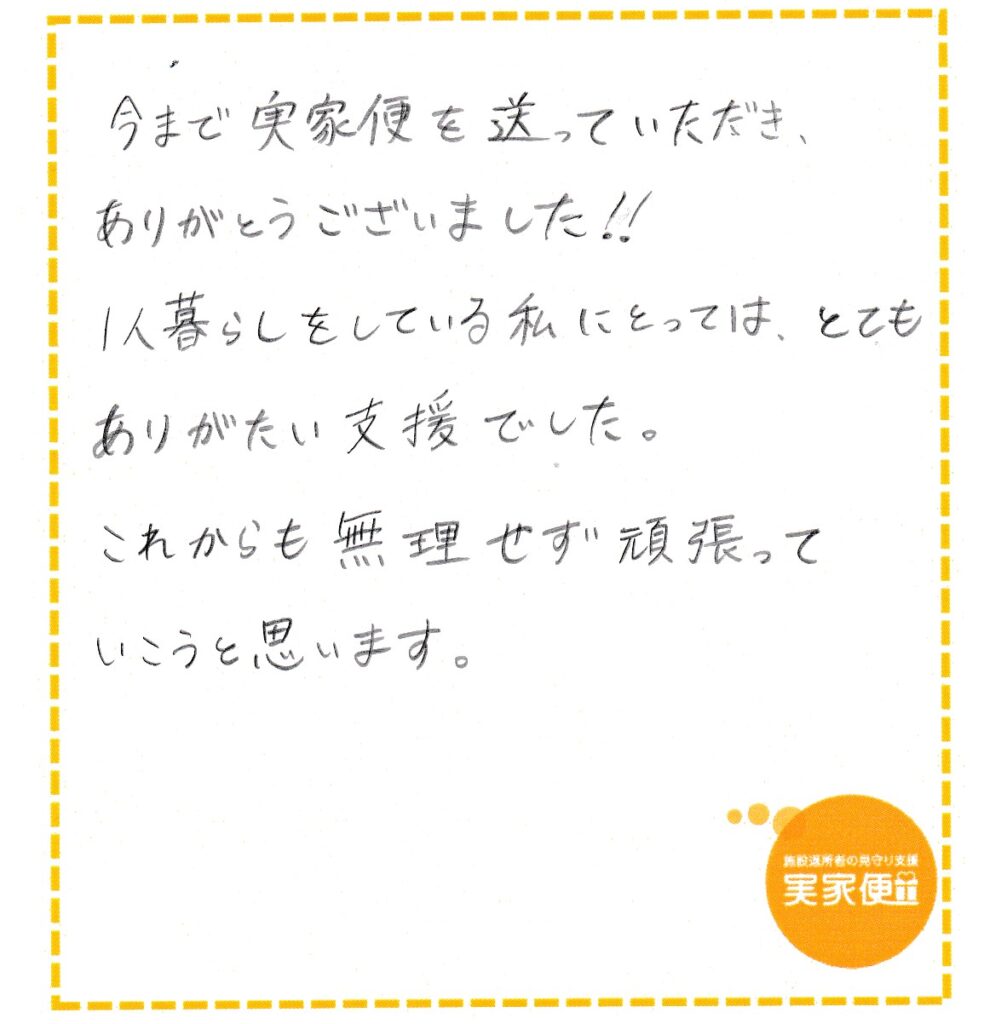 今まで実家便を送っていただき、
ありがとうございました!!
1人暮らしをしている私にとっては、とても
ありがたい支援でした。
これからも無理せず頑張って
いこうと思います。
施設退所者の見守り支援
実家便